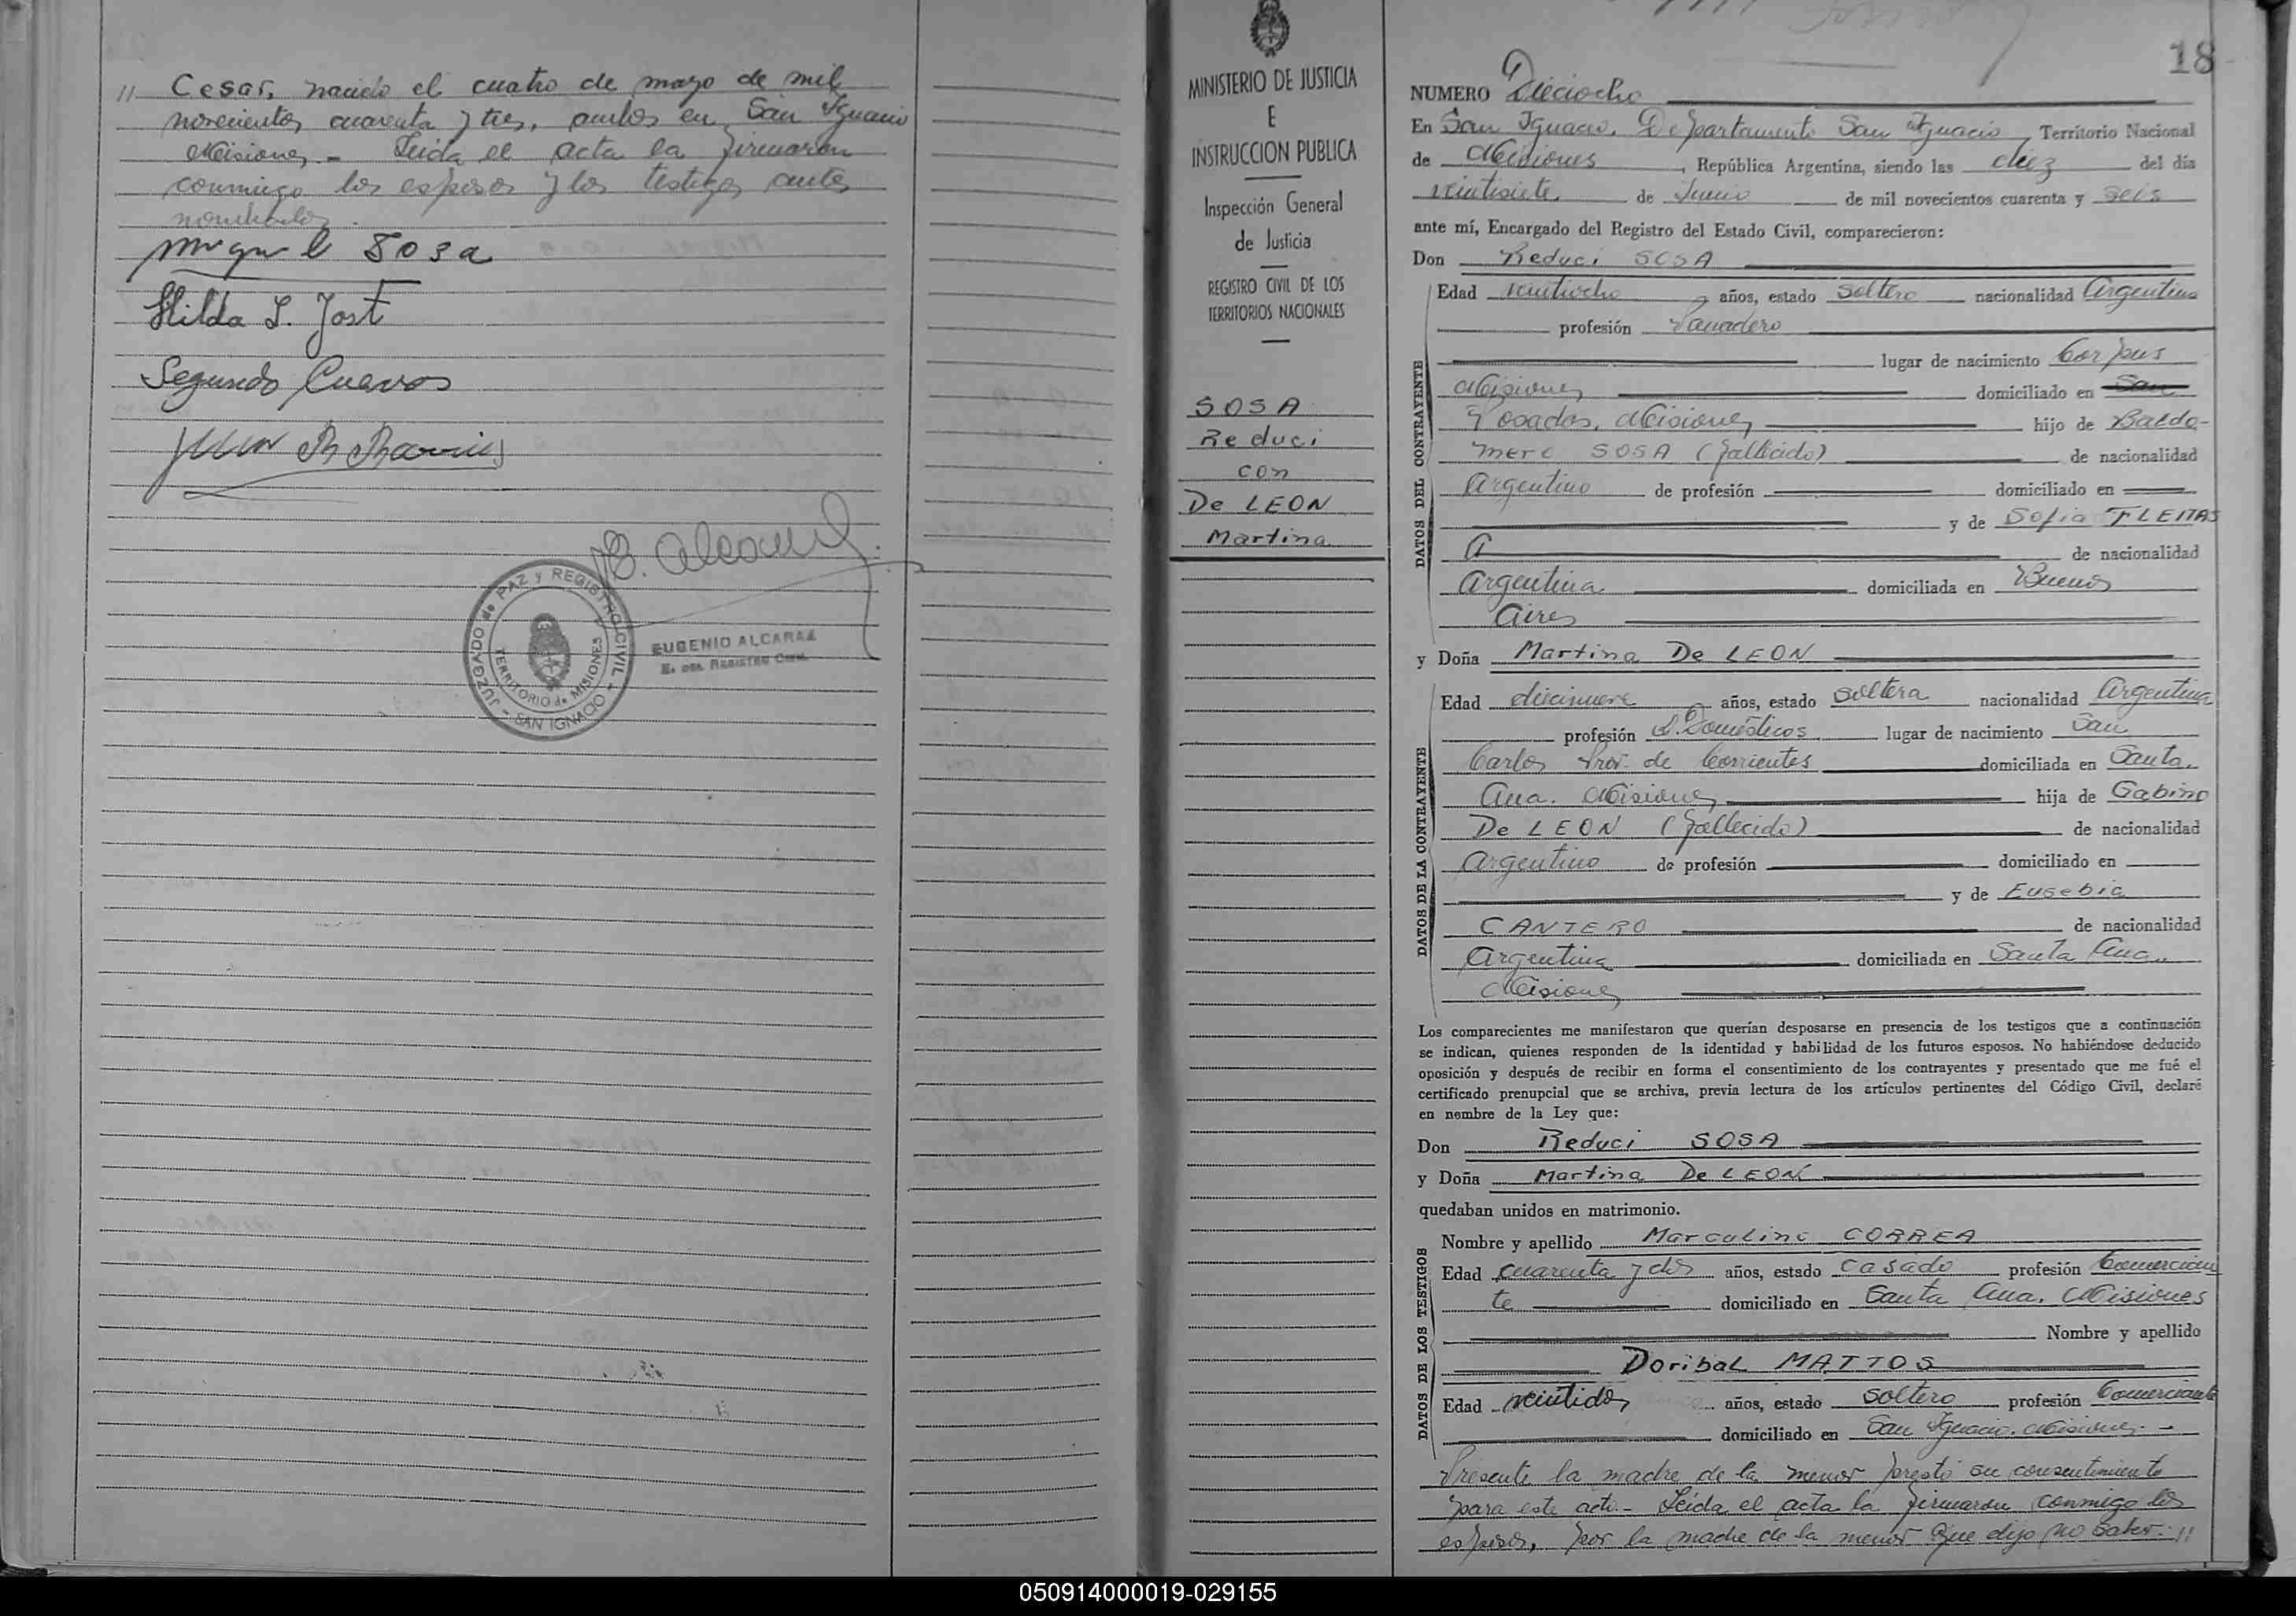 // Cesar, nacido el cuatro de mayo de mil
novecientos cuarenta y tres, ambos en San Ignacio
Misiones.- Leida el acta la firmaron
conmigo los esposos y los testigos antes
nombrados.
Miguel Sosa
Hilda I. Jost
Segundo Cuevas
E. Alcaraz
JUZGADO de PAZ y REGISTRO CIVIL - SAN IGNACIO -
TERRITORIO de MISIONES
EUGENIO ALCARAZ
E. DEL REGISTRO CIVIL
MINISTERIO DE JUSTICIA
E
INSTRUCCION PUBLICA
Inspección General
de Justicia
REGISTRO CIVIL DE LOS
TERRITORIOS NACIONALES
SOSA
Reduci
con
De LEON
Martina
18
NUMERO Dieciocho
En San Ignacio, Departamento San Ignacio Territorio Nacional
de Misiones, República Argentina, siendo las diez del día
veintisiete de Junio de mil novecientos cuarenta y seis
ante mí, Encargado del Registro del Estado Civil, comparecieron:
Don Reduci SOSA
DATOS DEL CONTRAYENTE
Edad veintiocho años, estado soltero nacionalidad Argentino
profesión Panadero
lugar de nacimiento Corpus
Misiones domiciliado en San
Posadas, Misiones hijo de Baldo-
mero SOSA (fallecido) de nacionalidad
Argentino de profesión domiciliado en
y de Sofia FLEITAS
de nacionalidad
Argentina domiciliada en Buenos
Aires
y Doña Martina De LEON
DATOS DE LA CONTRAYENTE
Edad diecinueve años, estado soltera nacionalidad Argentina
profesión Q. Domésticos lugar de nacimiento San
Carlos Prov. de Corrientes domiciliada en Santa
Ana. Misiones hija de Gabino
De LEON (fallecido) de nacionalidad
Argentino de profesión domiciliado en
y de Eusebia
CANTERO de nacionalidad
Argentina domiciliada en Santa Ana,
Misiones
Los comparecientes me manifestaron que querían desposarse en presencia de los testigos que a continuación
se indican, quienes responden de la identidad y habilidad de los futuros esposos. No habiéndose deducido
oposición y después de recibir en forma el consentimiento de los contrayentes y presentado que me fué el
certificado prenupcial que se archiva, previa lectura de los artículos pertinentes del Código Civil, declaré
en nombre de la Ley que:
Don Reduci SOSA
y Doña Martina De LEON
quedaban unidos en matrimonio.
DATOS DE LOS TESTIGOS
Nombre y apellido Marculino CORREA
Edad cuarenta y dos años, estado casado profesión Comercian
te domiciliado en Santa Ana. Misiones
Nombre y apellido
Doribal MATTOS
Edad veintidos años, estado soltero profesión Comerciante
domiciliado en San Ignacio. Misiones.-
Presente la madre de la menor prestó su consentimiento
para este acto.- Leida el acta la firmaron conmigo los
esposos, por la madre de la menor que dijo no saber://
050914000019-029155